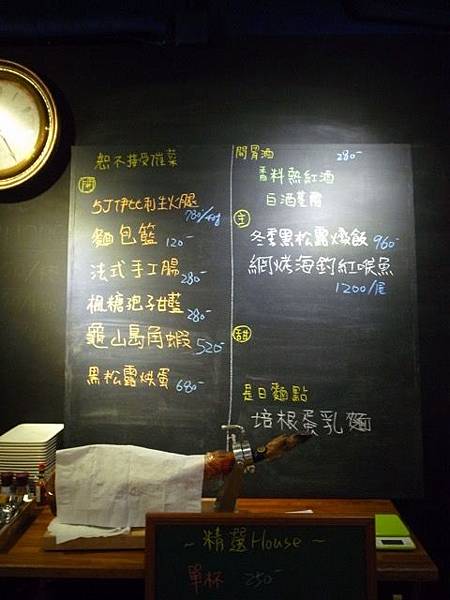 恕不接受催菜
開
5J伊比利生火腿
780/40g
麵包籃 120-
法式手工腸 280-
楓糖孢子甘藍 280-
龜山島角蝦 520-
黑松露烘蛋 680-
開胃酒 280-
香料熱紅酒
白酒
主
冬季黑松露燉飯 960-
網烤海釣紅喉魚
1200/尾
甜
是日麵點
培根蛋乳麵
~精選House~
單杯 250-